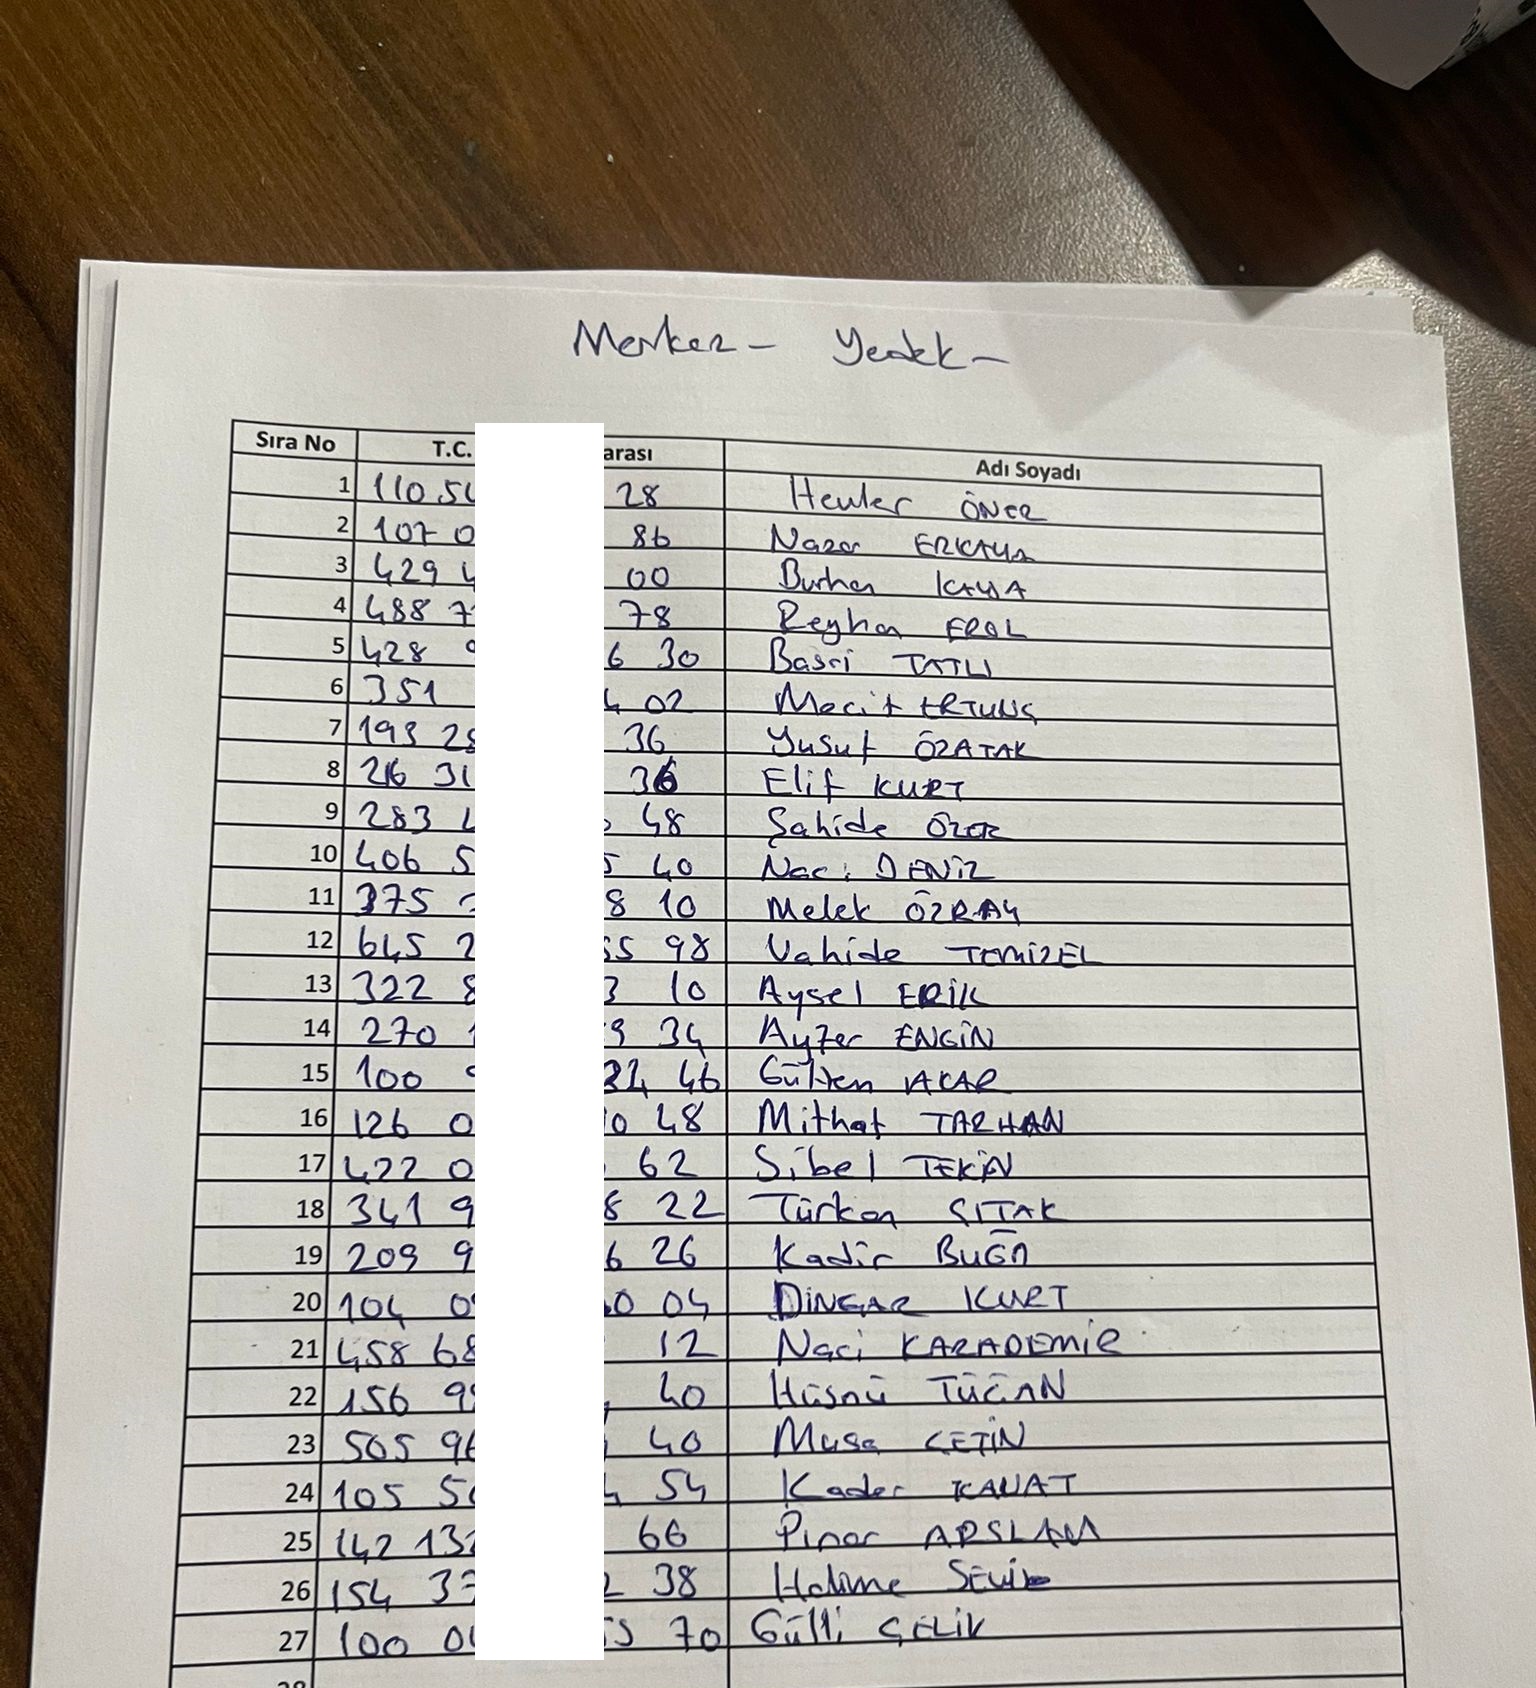 Merkez - Yedek -
Sıra No T.C. arası Adı Soyadı
1 110 54 28 Hevler ÖNER
2 107 0 86 Nazar ERKAYA
3 429 4 00 Burhan KAYA
4 488 7 78 Reyhan EROL
5 428 9 6 30 Basri TATLI
6 351 4 02 Macit ERTUNÇ
7 193 28 36 Yusuf ÖZATAK
8 216 31 36 Elif KURT
9 283 48 Şahide ÖZER
10 406 5 5 40 Naci DENİZ
11 375 8 10 Melek ÖZRAY
12 645 2 55 98 Vahide TEMİZEL
13 322 8 3 10 Aysel ERİK
14 270 1 9 34 Ayfer ENGİN
15 100 9 22 46 Gülten AKAR
16 126 0 0 48 Mithat TARHAN
17 422 0 62 Sibel TEKİN
18 341 9 8 22 Türkan SITAK
19 209 9 6 26 Kadir BUĞA
20 104 09 0 04 DİNGAR KURT
21 458 68 12 Naci KARADEMİR
22 156 99 40 Hüsnü
23 505 96 40 Musa ÇETİN
24 105 50 4 54 Kader KANAT
25 142 132 66 Pınar ARSLAN
26 154 37 2 38 Halime
27 100 00 55 70 Gülli ÇELİK
28